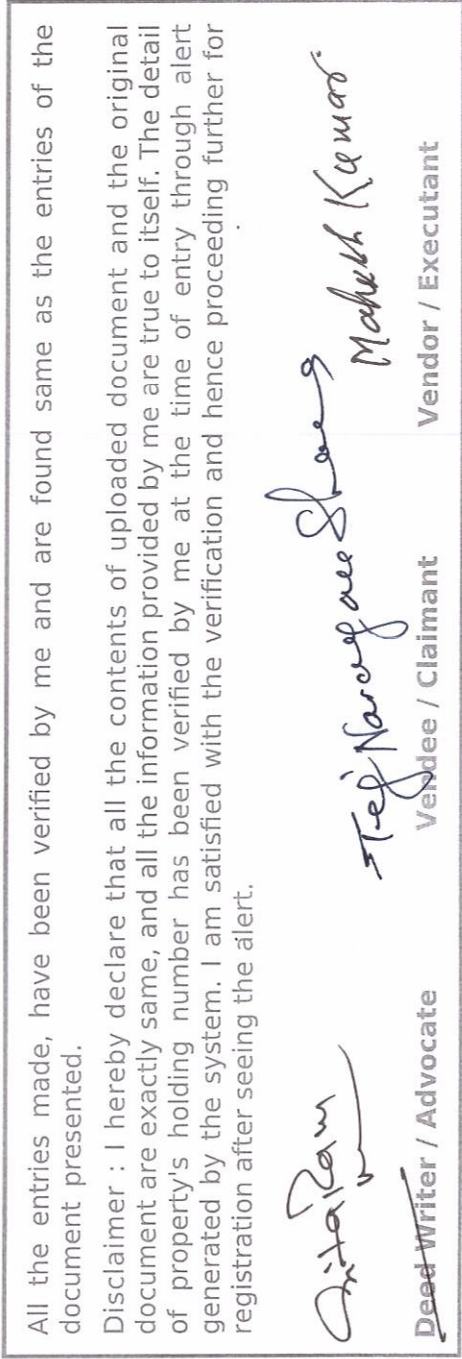 All the entries made, have been verified by me and are found same as the entries of the
document presented.
Disclaimer : I hereby declare that all the contents of uploaded document and the original
document are exactly same, and all the information provided by me are true to itself. The detail
of property's holding number has been verified by me at the time of entry through alert
generated by the system. I am satisfied with the verification and hence proceeding further for
registration after seeing the alert.
Tej Narayan Mahesh Kumar
Deed Writer / Advocate Vendee / Claimant Vendor / Executant